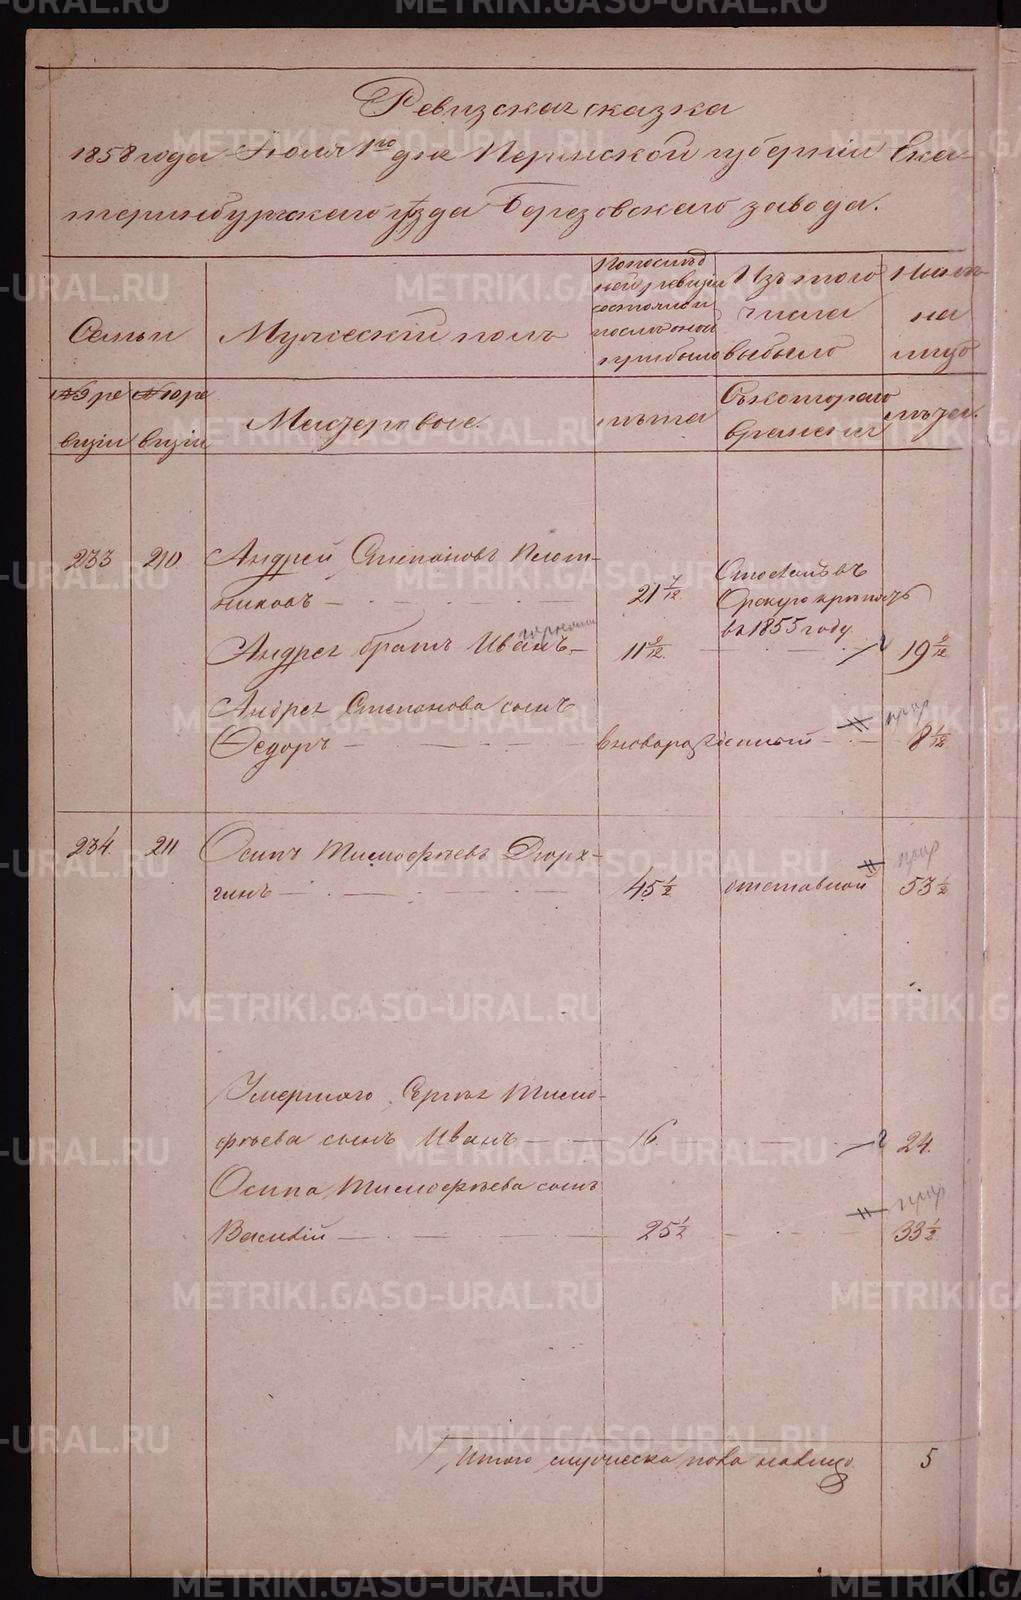 Ревизская сказка
1858 года Июля 1го дня Пермской губернии Ека-
теринбургского уѣзда Березовского завода.
Семьи
Мужескій полъ
По послѣд
ней ревизіи
состояло и
после оной
прибыло
Изъ того
числа
выбыло
Нынѣ
на
лицо
№ 9 ре
визіи
№ 10 ре
визіи
Мастеровые.
лѣта
Съ котораго
времени
лѣта.
233 210 Андрей Степановъ Плот-
никовъ 21 7/12 Сосланъ въ
Орскую крѣпость
въ 1855 году
Андрея братъ Иванъ 11 2/12 19 2/12
Андрея Степанова сынъ
Ѳедоръ вноворожденный 8 1/12
234. 211 Осипъ Тимофѣевъ
гинъ 45 1/2 отставной 53 1/2
Умершаго Сергѣя Тимо-
фѣева сынъ Иванъ 16 24.
Осипа Тимофѣева сынъ
Василій 25 1/2 33 1/2
Итого мужеска пола налицо 5
METRIKI.GASO-URAL.RU